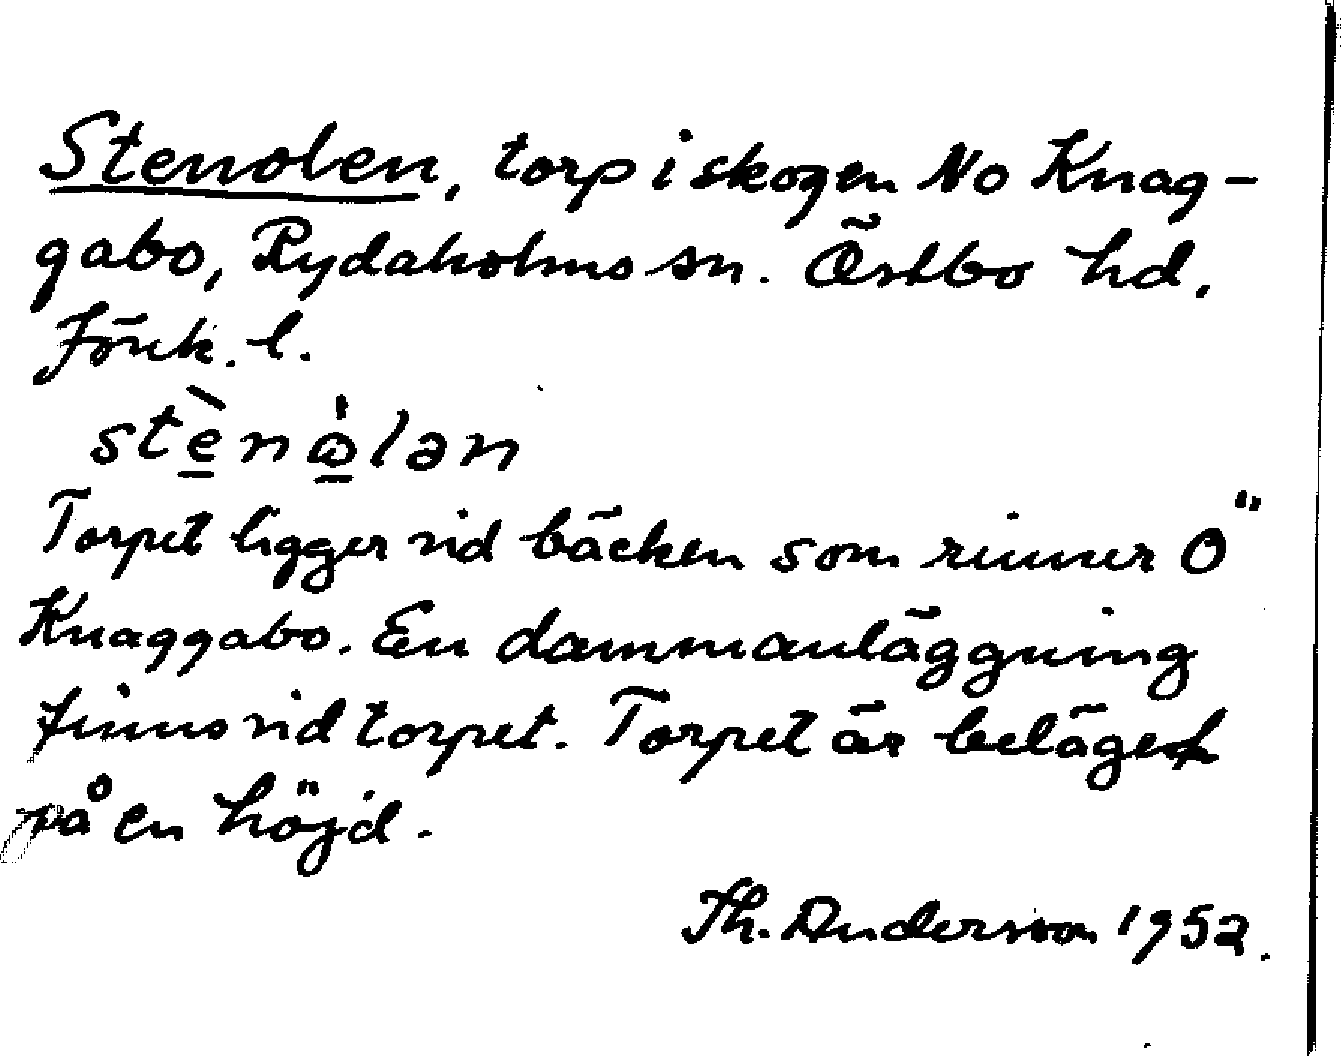 Stenolen, torp i skogen No Knag-
gabo, Rydaholms sn. Östbo hd.
Jönk. l.
stènòlən
Torpet ligger vid bäcken som rinner Ö
Knaggabo. En dammanläggning
finns vid torpet. Torpet är beläget
på en höjd.
Th. Andersson 1952.